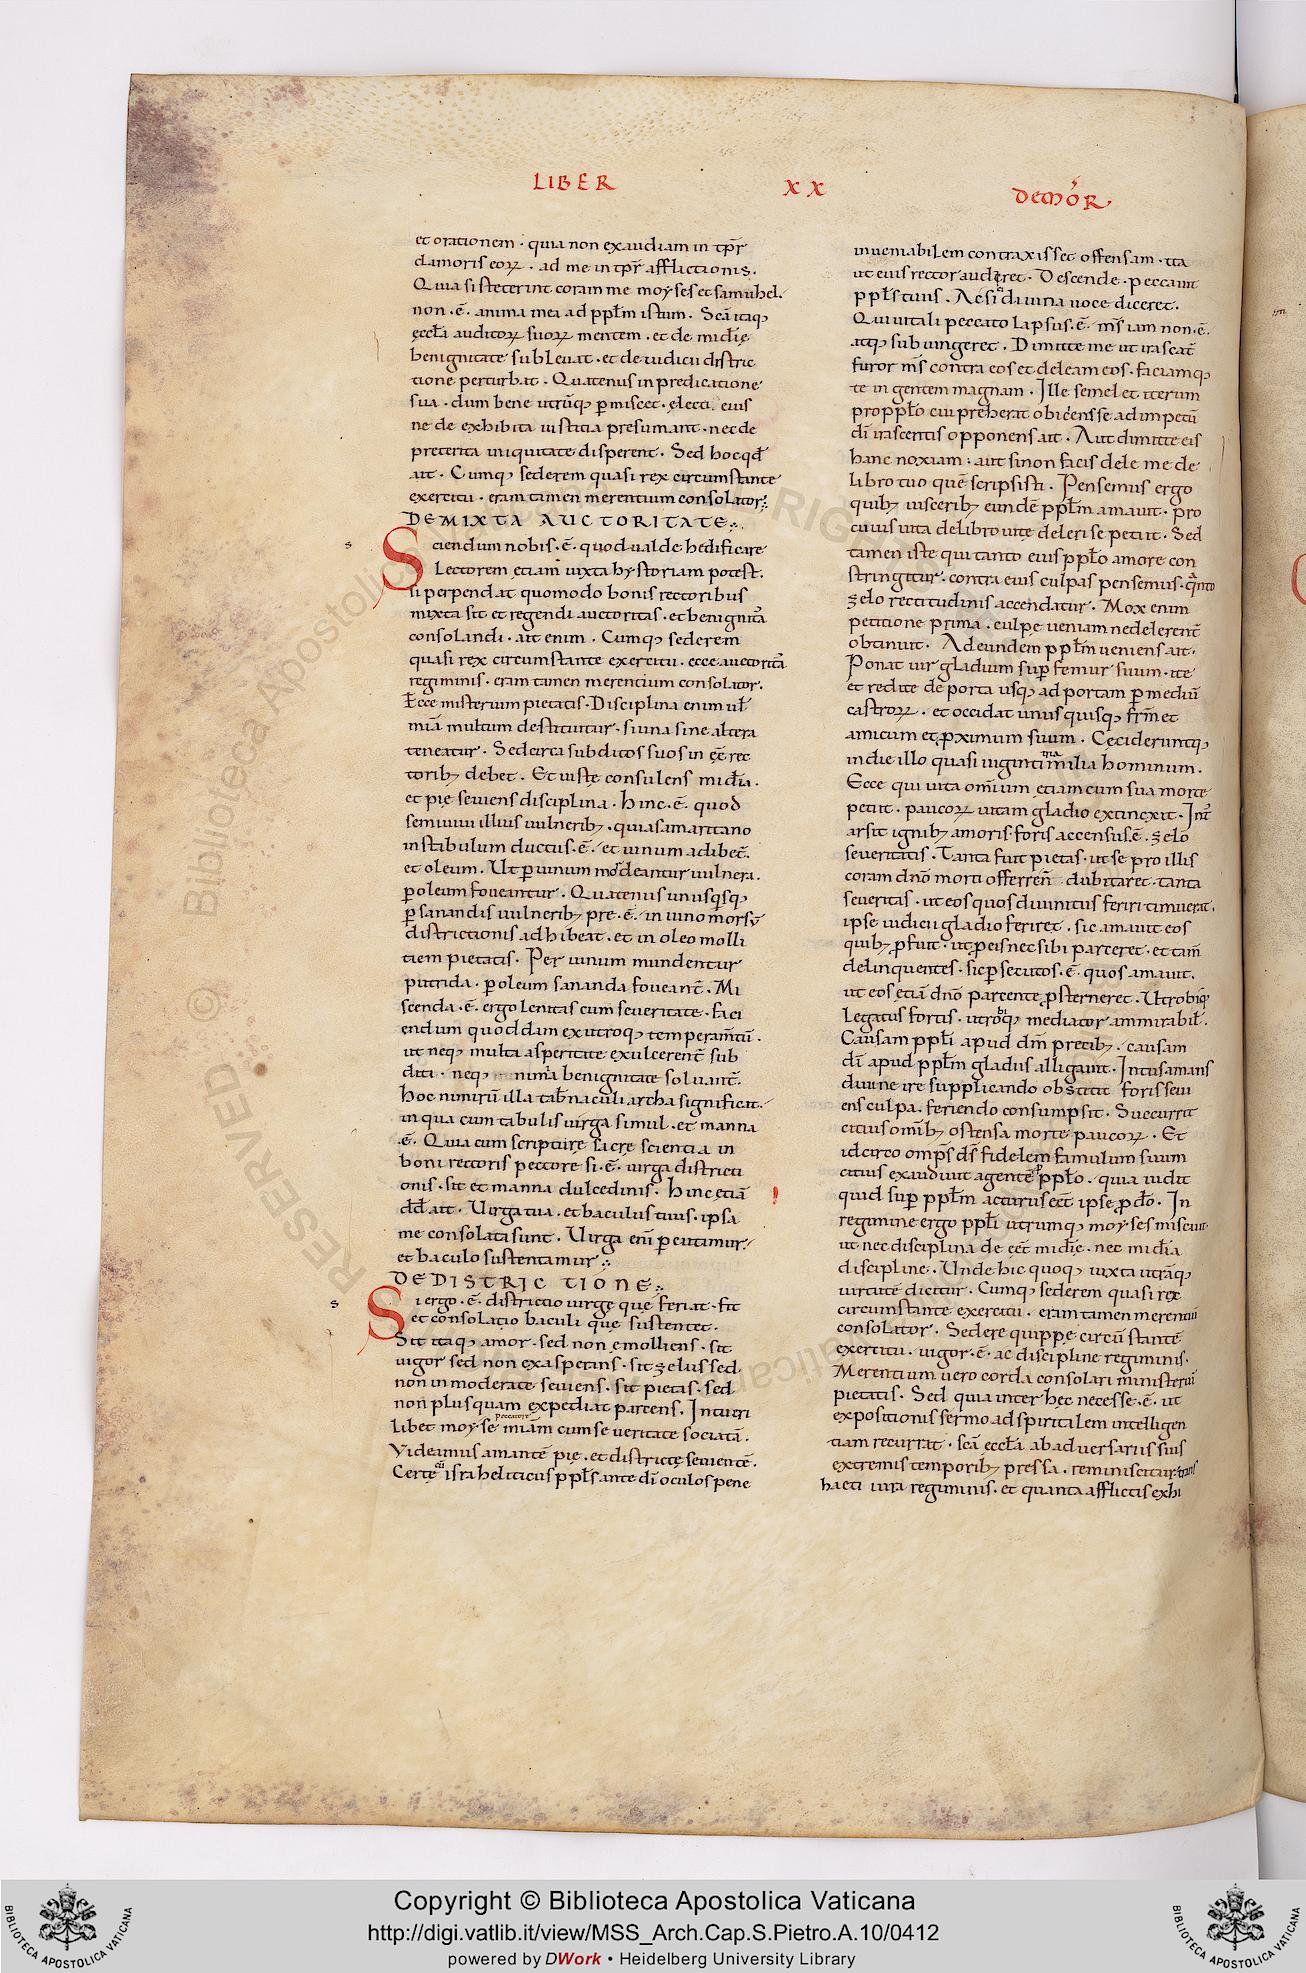 LIBER XX DEMOR
et orationem · quia non exaudiam in tp̄r
clamoris eoꝝ · ad me in tp̄r afflictionis.
Quia si steterint coram me moyses et samuhel·
non · ē · anima mea ad ppl̄m istum · Sc̄a itaq;
ęccl̄a auditoꝝ suoꝝ mentem · et de mid̄ię
benignitate subleuat · et de iudicii distric
tione perturbat · Quatenus in predicatione
sua · dum bene utrūq; ꝑmiscet · electi eius
ne de exhibita iustitia presumant · nec de
preterita iniquitate disperent · Sed hoc qd̄
ait · Cumq; sederem quasi rex circumstante
exercitu · eram tamen merentium consolator·:
DE MIXTA AUCTORITATE·:
Sciendum nobis · ē · quod ualde hedificare
Lectorem etiam iuxta hystoriam potest.
si perpendat quomodo bonis rectoribus
mixta sit et regendi auctoritas · et benignitā
consolandi · ait enim · Cumq; sederem
quasi rex circumstante exercitu · ecce auctoritā
regiminis · eram tamen merentium consolator.
Ecce misterium pietatis · Disciplina enim ul̄
miā multum destituitur · si una sine altera
teneatur · Sed circa subditos suos in eē rec
torib; debet · Et iustę consulens mid̄ia ·
et pię seuiens disciplina · hinc · ē · quod
semiuiui illius uulnerib; · qui a samaritano
in stabulum ductus · ē · et uinum adibet̄.
et oleum · Ut ꝑ uinum mordeantur uulnera.
ꝑ oleum foueantur · Quatenus unusqisq;
ꝑ sanandis uulnerib; pre · ē · in uino morsū
districtionis adhibeat · et in oleo molli
tiem pietatis · Per uinum mundentur
putrida · ꝑ oleum sananda foueant̄ · Mi
scenda · ē · ergo lenitas cum seueritate · faci
endum quoddam ex utroq; temperam̄tū ·
ut neq; multa asperitate exulcerent̄ sub
diti · neq; nimia benignitate soluant̄.
hoc nimirū illa tab̄naculi archa significat.
in qua cum tabulis uirga simul · et manna
· ē · Quia cum scripturę sacrę scientia in
boni rectoris pectore si · ē · uirga districti
onis · sit et manna dulcedinis · hinc etiā
dd̄ ait · Uirga tua · et baculus tuus · ipsa
me consolata sunt · Uirga eni̅ ꝑcutimur·
et baculo sustentamur·:
DE DISTRICTIONE·:
Si ergo · ē · districtio uirgę quę feriat · sit
et consolatio baculi quę sustentet.
Sit itaq; amor · sed non emolliens · sit
uigor sed non exasperans · sit zelus sed
non inmoderate seuiens · sit pietas · sed
non plusquam expediat parcens. Intueri
libet moyse peccatore miām cum seueritate sociatā.
Videamus amantē pie · et districtę seuientē.
Certę cū israheliticus ppl̄s ante dī oculos pene
inueniabilem contraxisset offensam · ita
ut eius rector audiret · Descende · peccauit
ppl̄s tuus · Ac si ei diuina uoce diceret.
Qui in tali peccato lapsus · ē · ms̄ iam non · ē ·
atq; subiungeret · Dimitte me ut irascat̄
furor ms̄ contra eos et deleam eos · faciamq;
te in gentem magnam · Ille semel et iterum
pro ppl̄o cui preherat obicens se ad impetū
dī irascentis opponens ait · Aut dimitte eis
hanc noxiam · aut si non facis dele me de
libro tuo quē scripsisti · Pensemus ergo
quib; uisserib; eundē ppl̄m amauit · pro
cuius uita de libro uitę deleri se petiit · Sed
tamen iste qui tanto eius ppl̄o amore con
stringitur · contra eius culpas pensemus · qnto
zelo rectitudinis accendatur · Mox enim
petitione prima · culpę ueniam ne delerent̄
obtinuit · Ad eundem ppl̄m ueniens ait·
Ponat uir gladium suꝑ femur suum · ite
et redite de porta usq; ad portam ꝑ mediū
castroꝝ · et occidat unus quisq; fr̄m et
amicum et ꝓximum suum · Ceciderunt q;
in die illo quasi uiginti tria milia hominum.
Ecce qui uita om̄ium etiam cum sua morte
petiit · paucoꝝ uitam gladio extincxit · Int̄
arsit ignib; amoris · foris accensus · ē · zelo
seueritatis · Tanta fuit pietas · ut se pro illis
coram dn̄o morti offerre n̄ dubitaret · tanta
seueritas · ut eos quos diuinitus feriri timuerat ·
ipse iudicii gladio feriret · sic amauit eos
quib; ꝓfuit · ut ꝓ eis nec sibi parceret · et tam̄
delinquentes · sic ꝑsecutos · ē · quos amauit.
ut eos etiā dn̄o parcente ꝓsterneret · Utrobiq;
legatus fortis · utrobiq; mediator ammirabil̄.
Causam ppl̄i apud dm̄ precib; · causam
dī apud ppl̄m gladiis alligauit · Intus amans
diuinę irę supplicando obstitit foris seui
ens culpa · feriendo consumpsit · Succurrit
citius om̄ib; ostensa morte paucoꝝ · Et
idcirco omp̄s ds̄ fidelem famulum suum
citius exaudiuit agentē ꝓ ppl̄o · quia uidit
quid suꝑ ppl̄m acturus eēt ipse ꝓ do̅ · In
regimine ergo ppl̄i utrumq; moyses miscuit·
ut nec disciplina de eēt mid̄ię · nec mid̄ia
disciplinę · Unde hic quoq; iuxta utrāq;
uirtutē dicitur · Cumq; sederem quasi rex
circumstante exercitu · eram tamen merentiū
consolator · Sedere quippe circū stante
exercitu · uigor · ē · ac disciplinę regiminis·
Merentium uero corda consolari ministeriū
pietatis · Sed quia inter hęc necesse · ē · ut
expositionis sermo ad spiritalem intelligen
tiam recurrat · sc̄a eccl̄a ab aduersariis suis
extremis temporib; pressa · reminiscitur · trans
hacti iura regiminis · et quanta afflictis exhi
Copyright © Biblioteca Apostolica Vaticana
http://digi.vatlib.it/view/MSS_Arch.Cap.S.Pietro.A.10/0412
powered by DWork • Heidelberg University Library